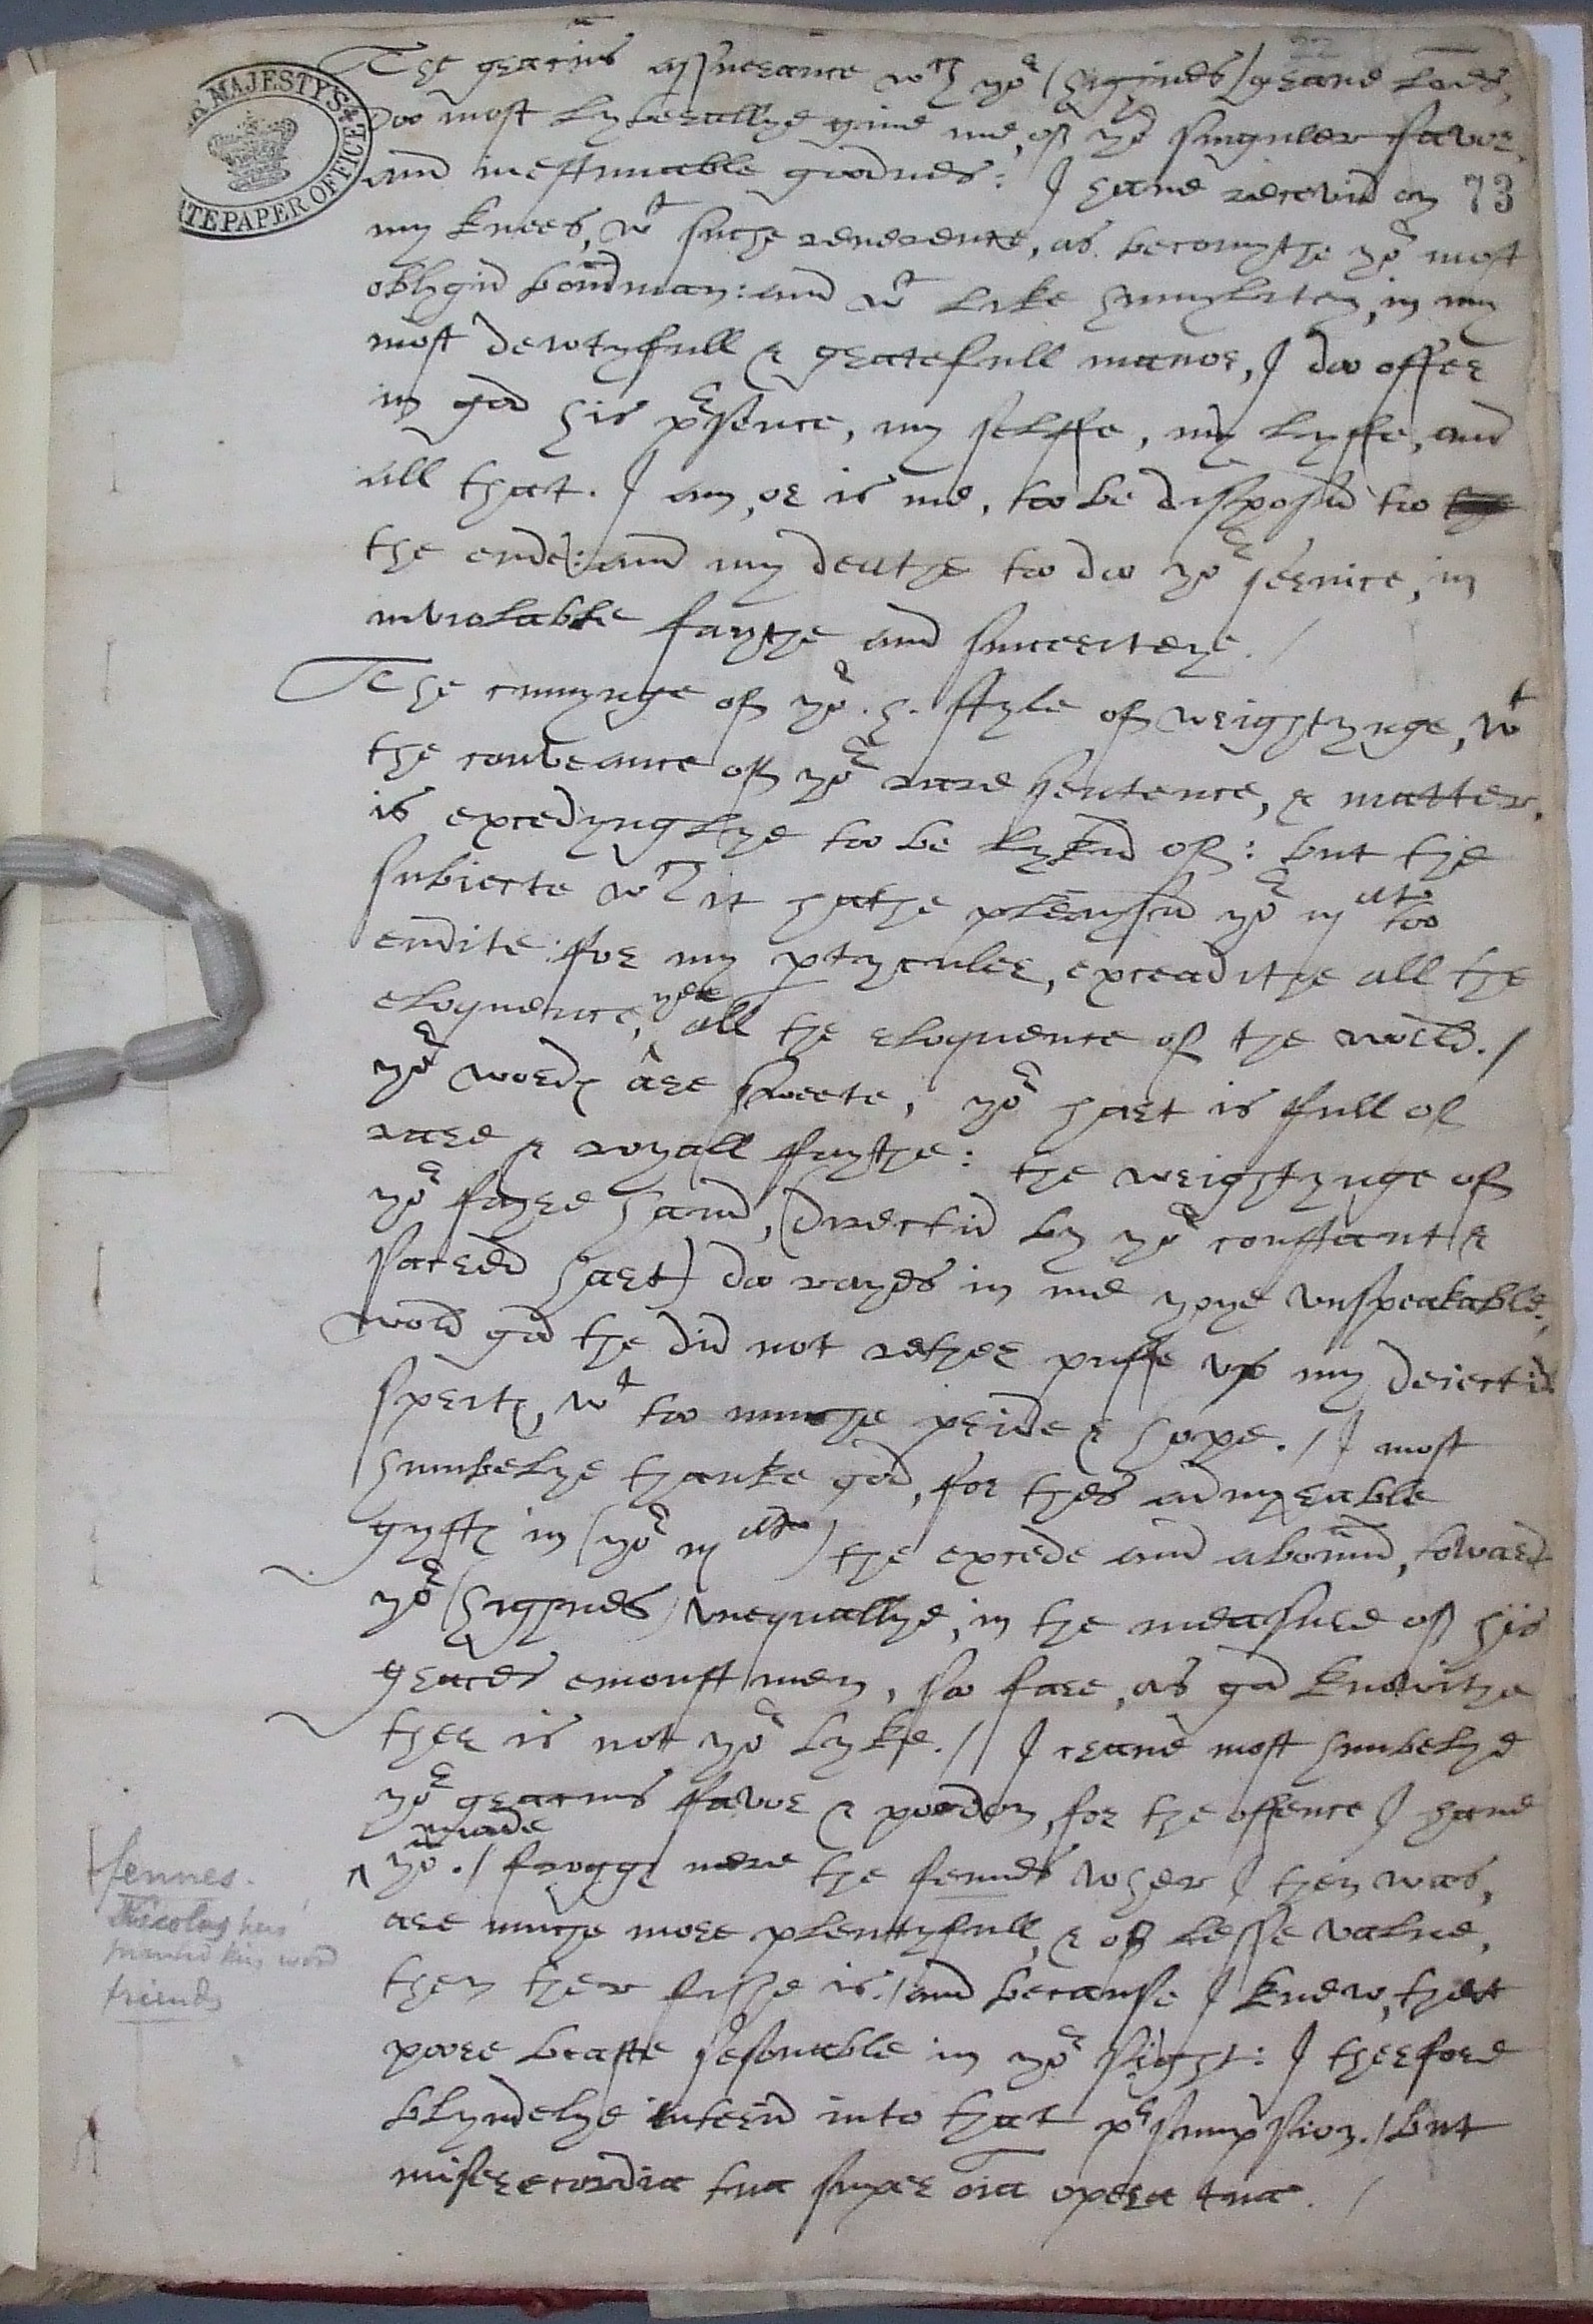 22
HER MAJESTY'S STATE PAPER OFFICE
The gracius assuerance wch yor (highnes) hand lends,
doo most lyberallye give me, of yor singuler favor,
and inestimable goodnes: I have recevid on 73
my knees, wt suche reverence, as becomythe yor most
oblygid bondman: and wt like humylitey, in my
most dewtyfull & gratefull maner, I do offer
in god his presence, my selffe, my lyffe, and
all that. I am, or is me, too be disposid too
the ende: and my deathe too doo yor service, in
inviolable faythe and sinceriteye. /
The cunnynge of yor. h. style of wrightynge, wt
the conveance of yor rare sentence, & matter,
is excedynglye too be lykid of: but the
subiecte wch it hathe pleaysid yor matie too
endite for my ptyculer, exceadithe all the
eloquence, yee all the eloquence of the world. /
yor words are sweete, yor hart is full of
rare & royall faythe: the wrightynge of
yor fayre hand, (directid by yor constant &
sacred hart) do rayes in me yoye unspeakable,
wold god the did not rether puffe up my deiectid
sprits, wt too muche pride & hope. / I most
humbelye thanke god, for thes admyrable
gyfts in (yor matie) the excede and abound, toward
yor (highnes) unequallye, in the measure of his
graces emonst men, so fare, as god knowithe
ther is not yor lyke. // I crave most humbelye
yor gracius favor & pardon, for the offence I have
made
yor. / froggs nere the fennes wher I then was,
are muche more plentyfull, & of lesse value,
then ther fishe is. / and because I knew, that
poore beaste sesonable in yor sight: I therfore
blyndelye enterid into that presumpsion. / but
miserecordia tua super oia opera tua. /
fennes.
Nicolas has
printed this word
friends